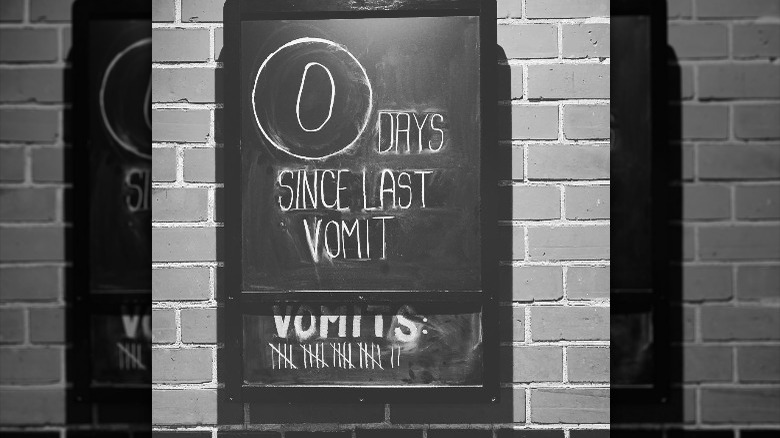 0 DAYS
SINCE LAST
VOMIT
VOMITS: